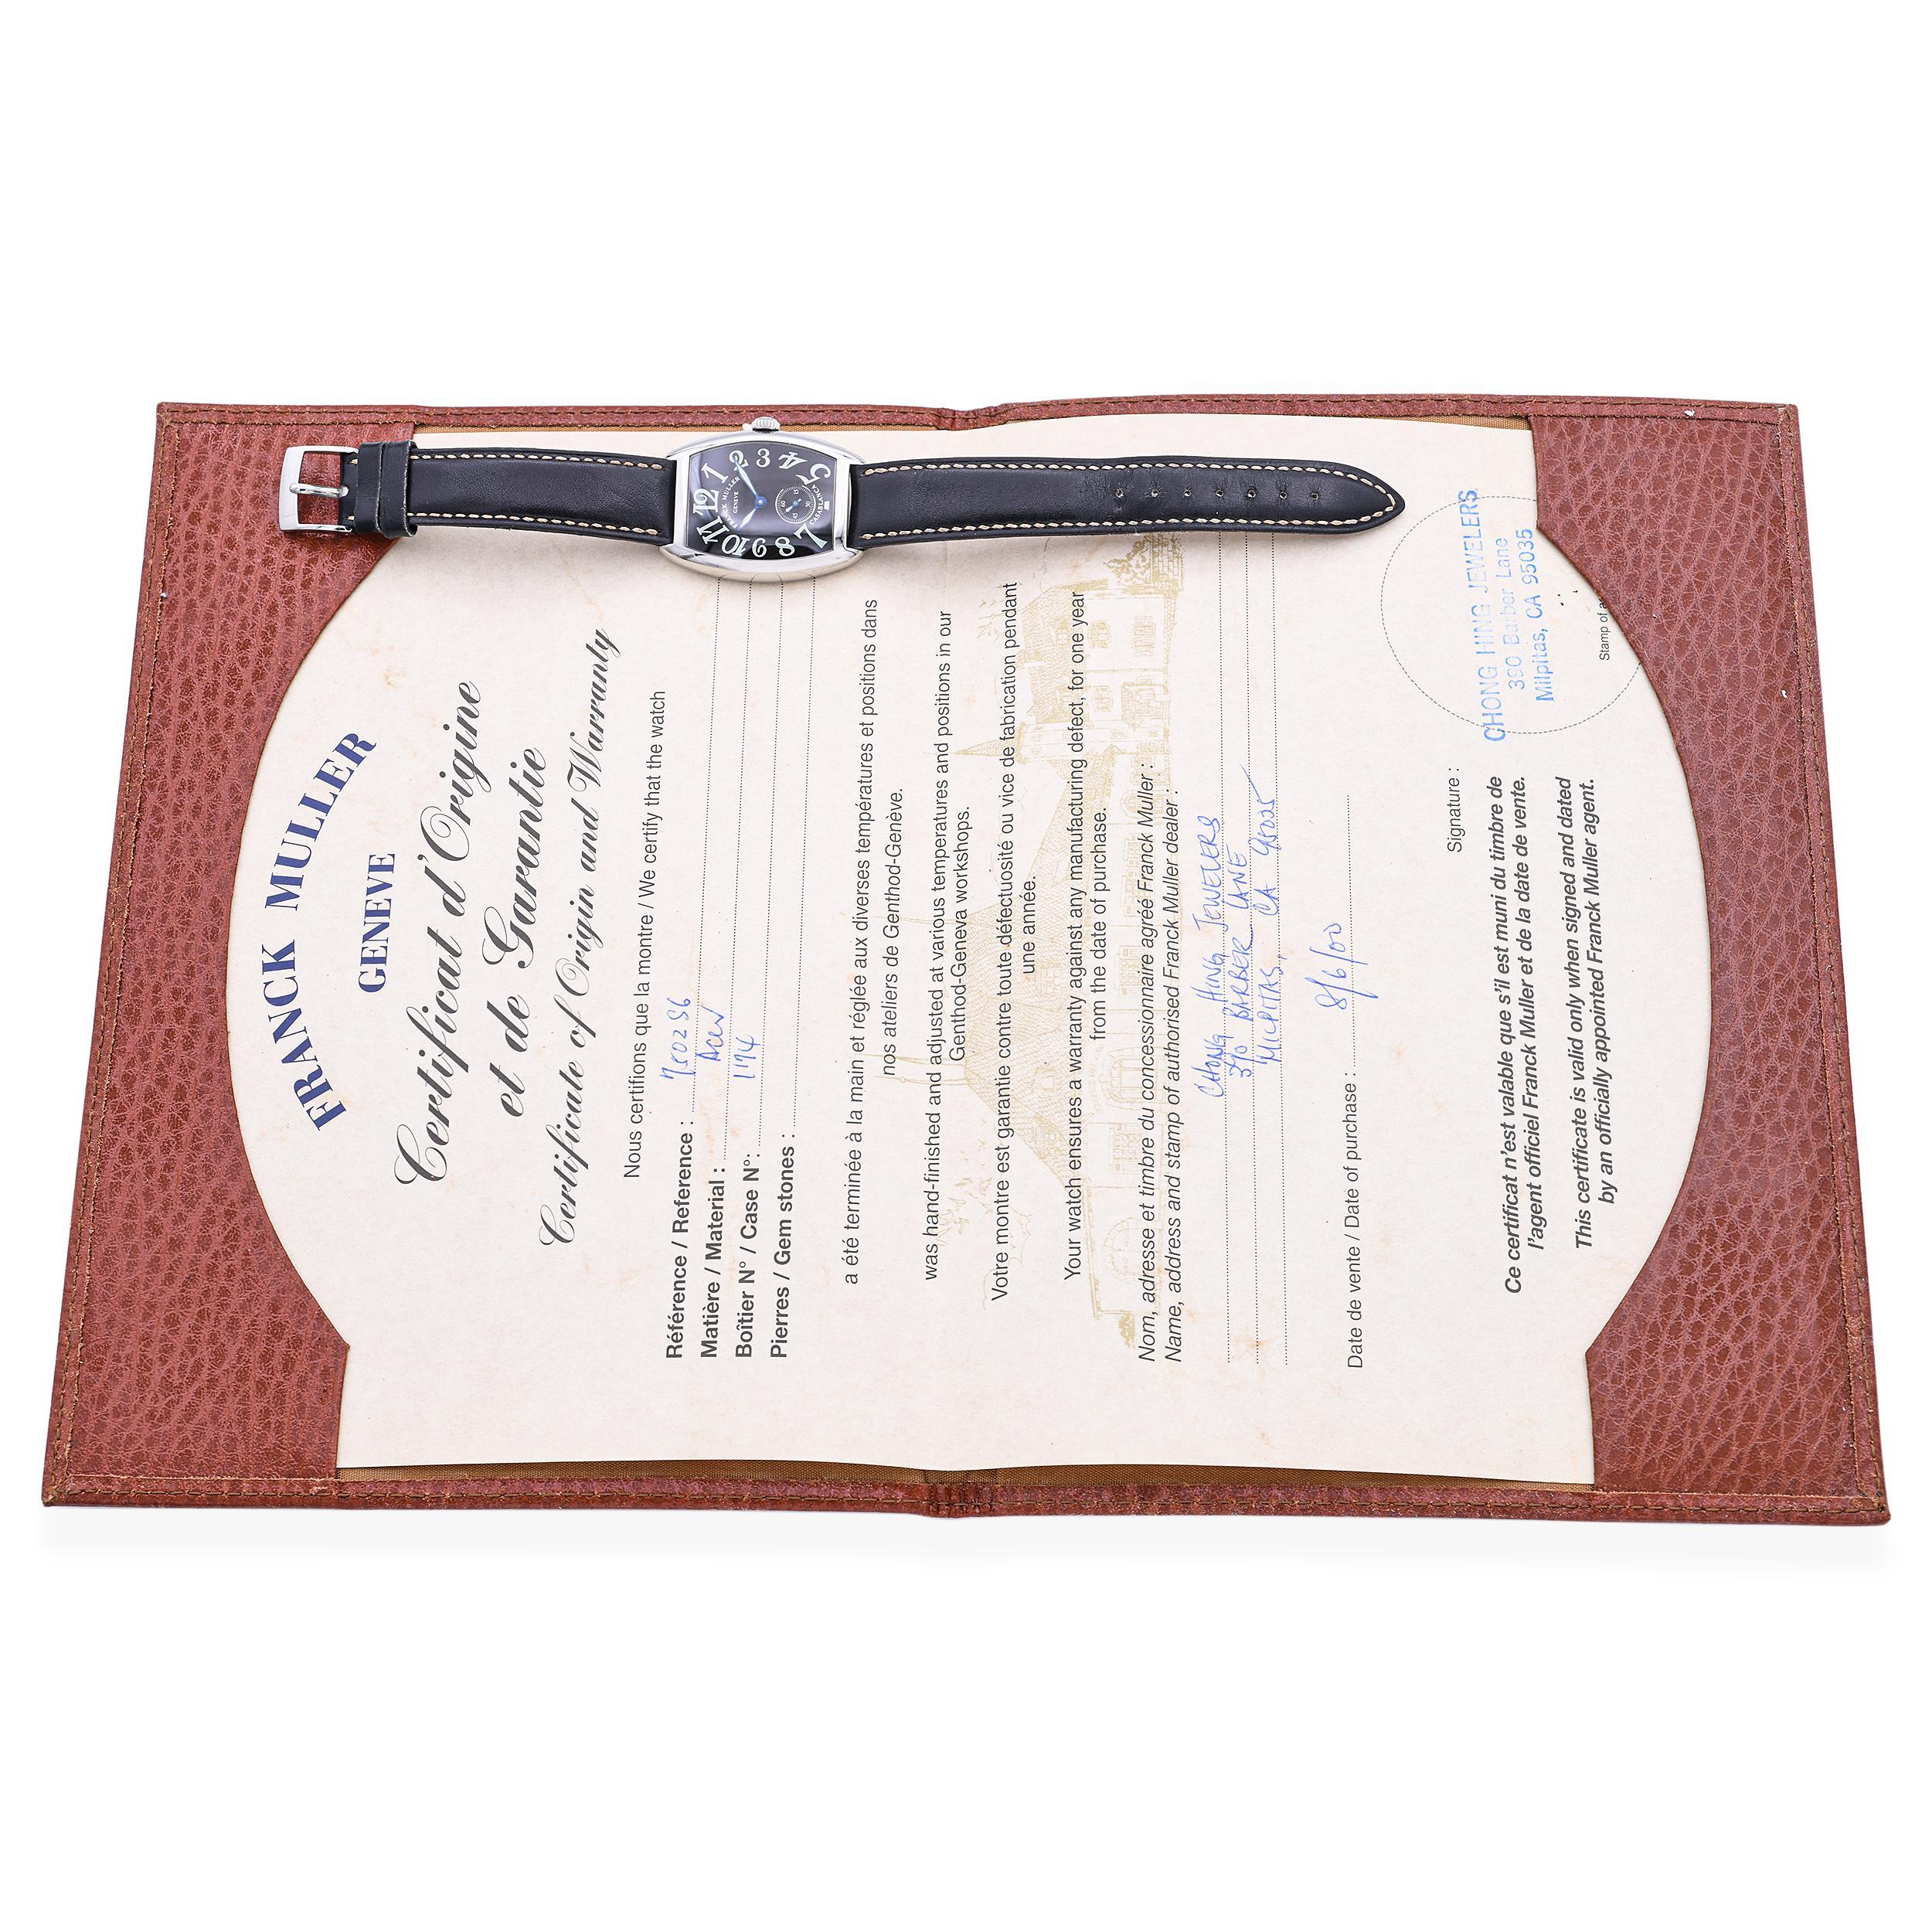 FRANCK MULLER
GENEVE
Certificat d'Origine
et de Garantie
Certificate of Origin and Warranty
Nous certifions que la montre / We certify that the watch
Référence / Reference : 7502 S6
Matière / Material : ACIER
Boîtier N° / Case N°: 1174
Pierres / Gem stones :
a été terminée à la main et réglée aux diverses températures et positions dans
nos ateliers de Genthod-Genève.
was hand-finished and adjusted at various temperatures and positions in our
Genthod-Geneva workshops.
Votre montre est garantie contre toute défectuosité ou vice de fabrication pendant
une année.
Your watch ensures a warranty against any manufacturing defect, for one year
from the date of purchase.
Nom, adresse et timbre du concessionnaire agréé Franck Muller :
Name, address and stamp of authorised Franck Muller dealer :
CHONG HING JEWELERS
390 BARBER LANE
MILPITAS, CA 95035
Date de vente / Date of purchase : 8/6/00
Signature :
CHONG HING JEWELERS
390 Barber Lane
Milpitas, CA 95035
Stamp of
Ce certificat n'est valable que s'il est muni du timbre de
l'agent officiel Franck Muller et de la date de vente.
This certificate is valid only when signed and dated
by an officially appointed Franck Muller agent.
12 1 2 3 4 5 7 8 9 10 11
FRANCK MULLER
GENEVE
60 15 30 45
CASABLANCA